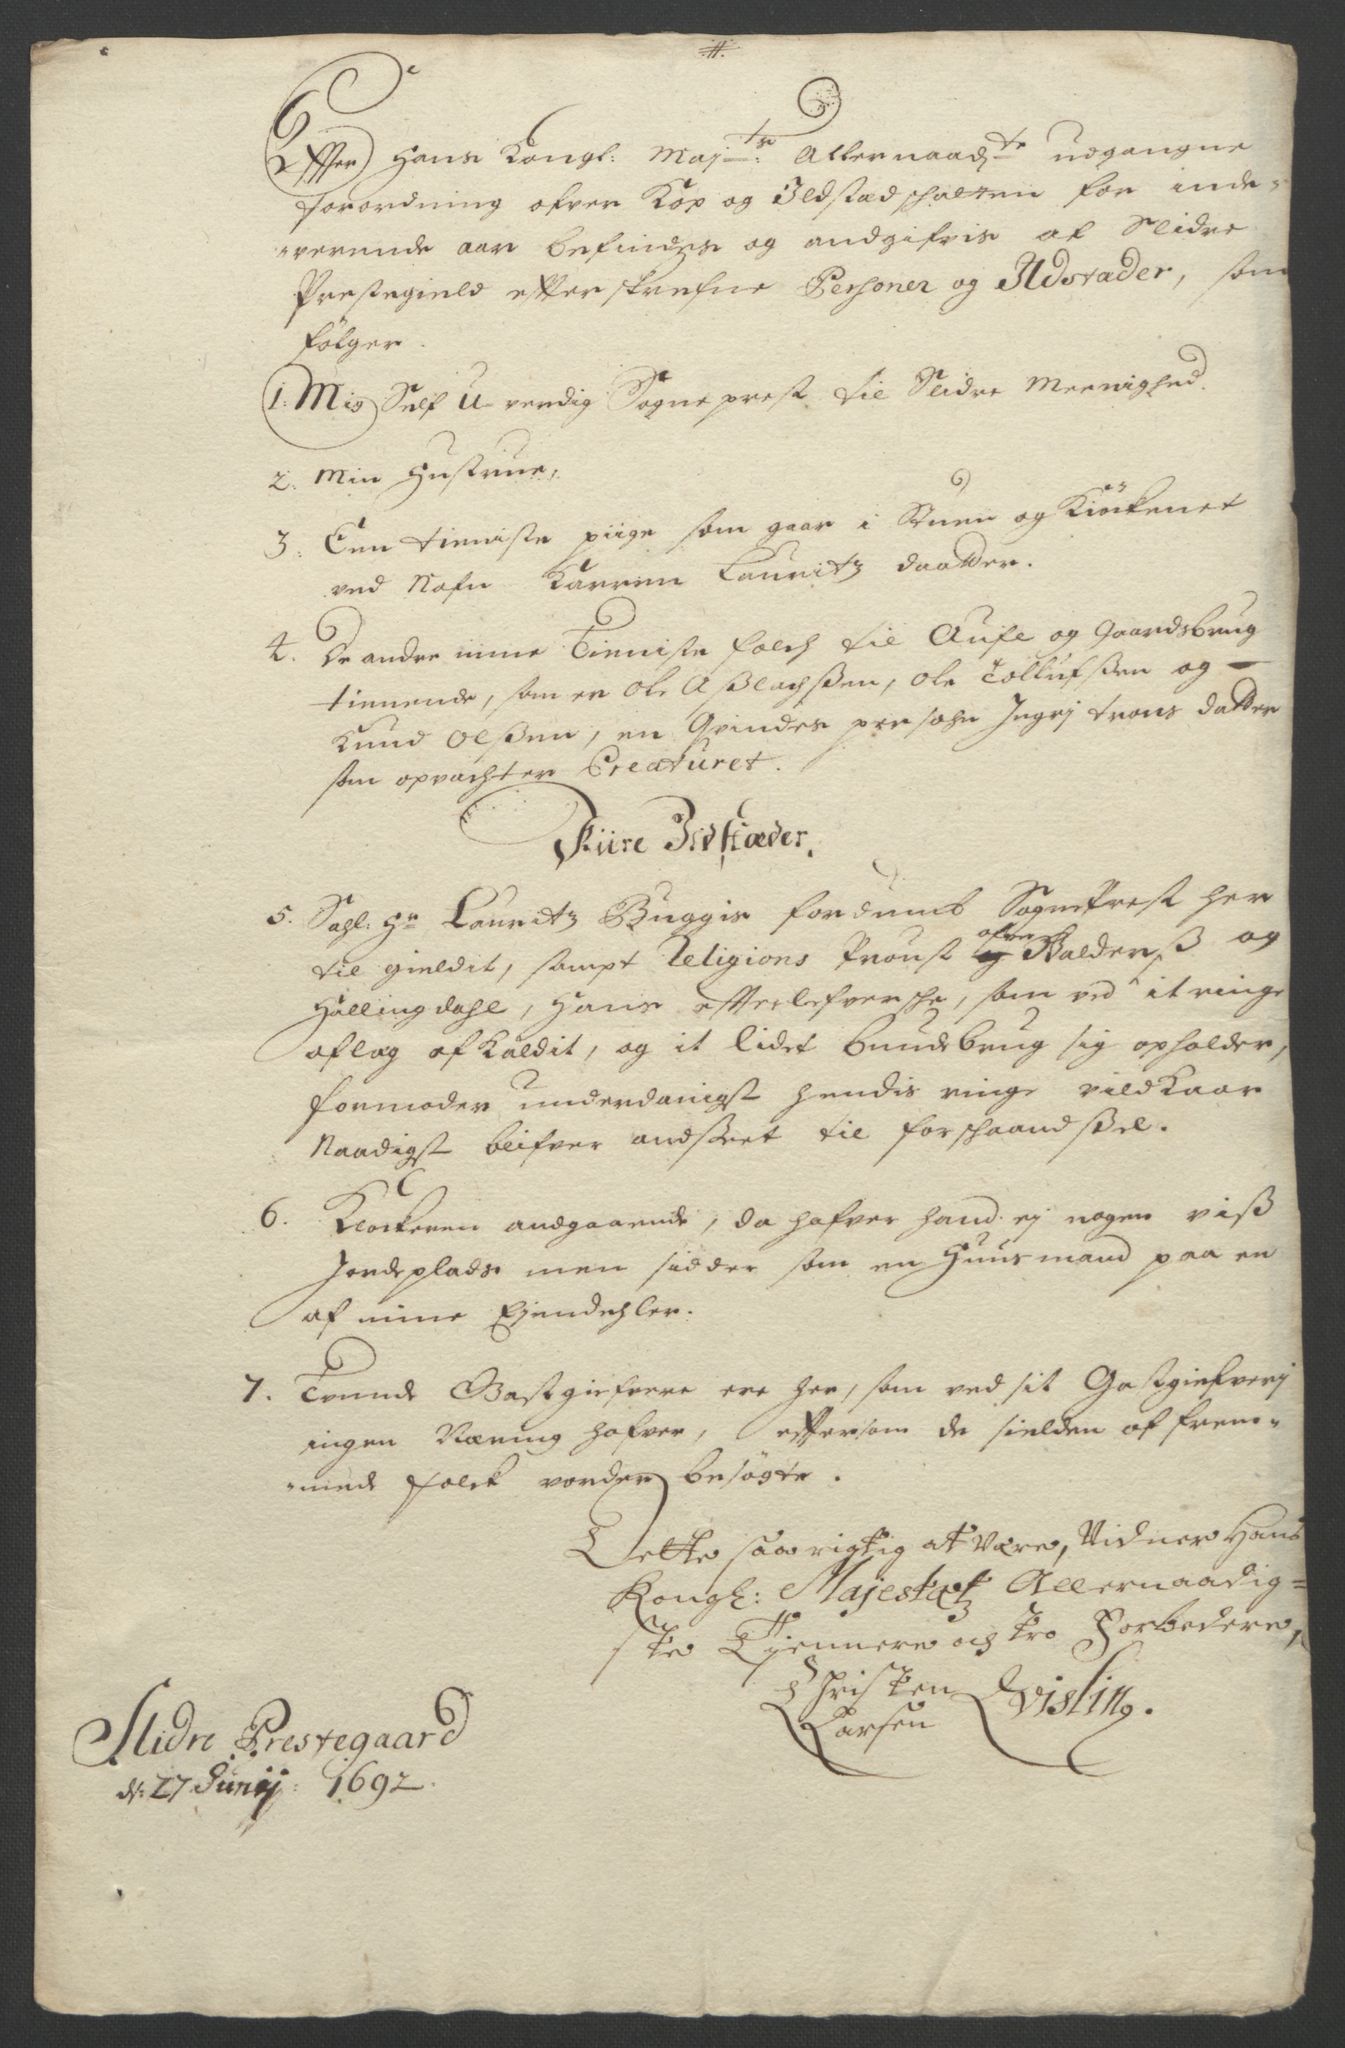 Effter Hans Kongl: Maj:ts Allernaadste udgangne
forordning ofver Kop og Ildstæd schatten for inde-
værende aar befindes og andgifvis af Slidre
Prestegield effterskrefne Personer og Ildstæder, som
følger.
1. Mig Self U-verdig Sogneprest til Slidre Meenighed.
2. Min Hustrue,
3. Een tieniste piige som gaar i Stuen og Kiöckenet
ved Nafn Karren Lauritz daatter.
4. De andre mine Tieniste folch til Aufle og Gaardsbrug
tienende, som er Ole Aßlachßen, Ole Tollufßen og
Knud Olßen, en Qvindes persohn Jngrj trons datter
som opvachter Creaturet.
Fiire Ildstæder.
5. Sahl: Hr Lauritz Buggis fordumb SognePrest her
til gieldit, sampt Religions Proust ofver Walderß og
Hallingdahl, Hans effterlefversche, som ved it ringe
aflag af Kaldit, og it lidet bundebrug sig opholder,
formoder underdanigst hendis ringe vildkaar
Naadigst blifver andseet til forschaandßel.
6. Klockeren andgaaende, da hafver hand ej nogen viß
Jordeplads men sidder som en Huusmand paa en
af mine Ejendehler.
7. Tvende Gastgiefvere ere her, som ved sit Gastgiefverj
ingen Næring hafver, efftersom de sielden af frem-
mede folck vorder besøgte.
Dette saa rigtig at være, Vidner Hans
Kongl: Majestætz Allernaadig=
ste Tjennere och tro Forbedere,
Christen Qvisling.
Larsen
Slidre Prestegaard
d: 27 Junij: 1692.